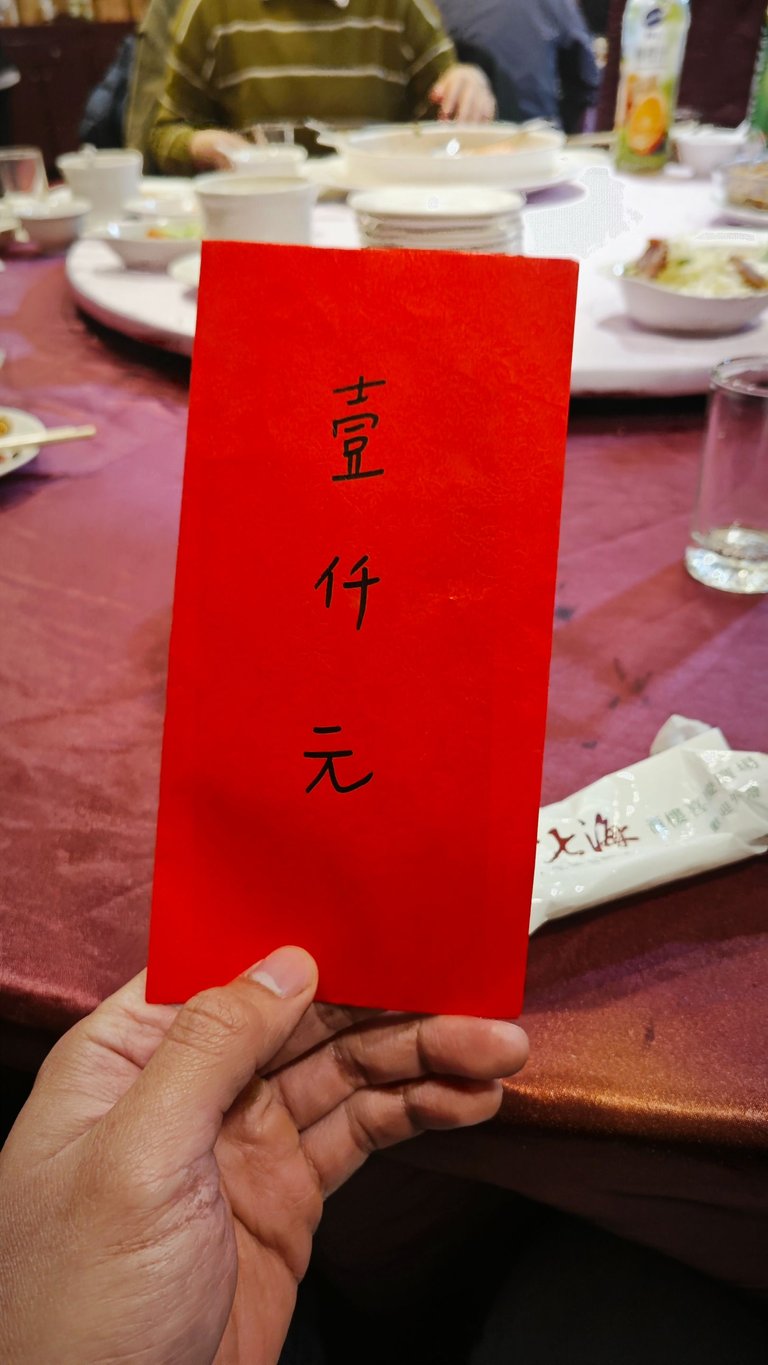 壹仟元
大漁